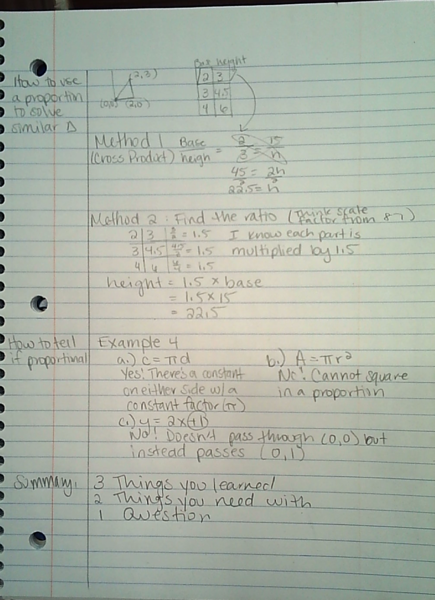 How to use
a proportion
to solve
similar Δ
(2,3)
(0,0) (2,0)
Base height
2 3
3 4.5
4 6
Method 1 Base = 2 = 15
(Cross Product) heigh 3 h
45 = 2h
22.5 = h
Method 2: Find the ratio (Think scale
factor from
2 3 3/2 = 1.5 I know each part is
3 4.5 4.5/3 = 1.5 multiplied by 1.5
4 6 6/4 = 1.5
height = 1.5 × base
= 1.5 × 15
= 22.5
How to tell
if proportional
Example 4
a.) C = πd
Yes! There's a constant
on either side w/ a
constant factor (π)
b.) A = πr²
No! Cannot square
in a proportion
c.) y = 2x+1
No! Doesn't pass through (0,0) but
instead passes (0,1)
Summary:
3 Things you learned
2 Things you need with
1 Question